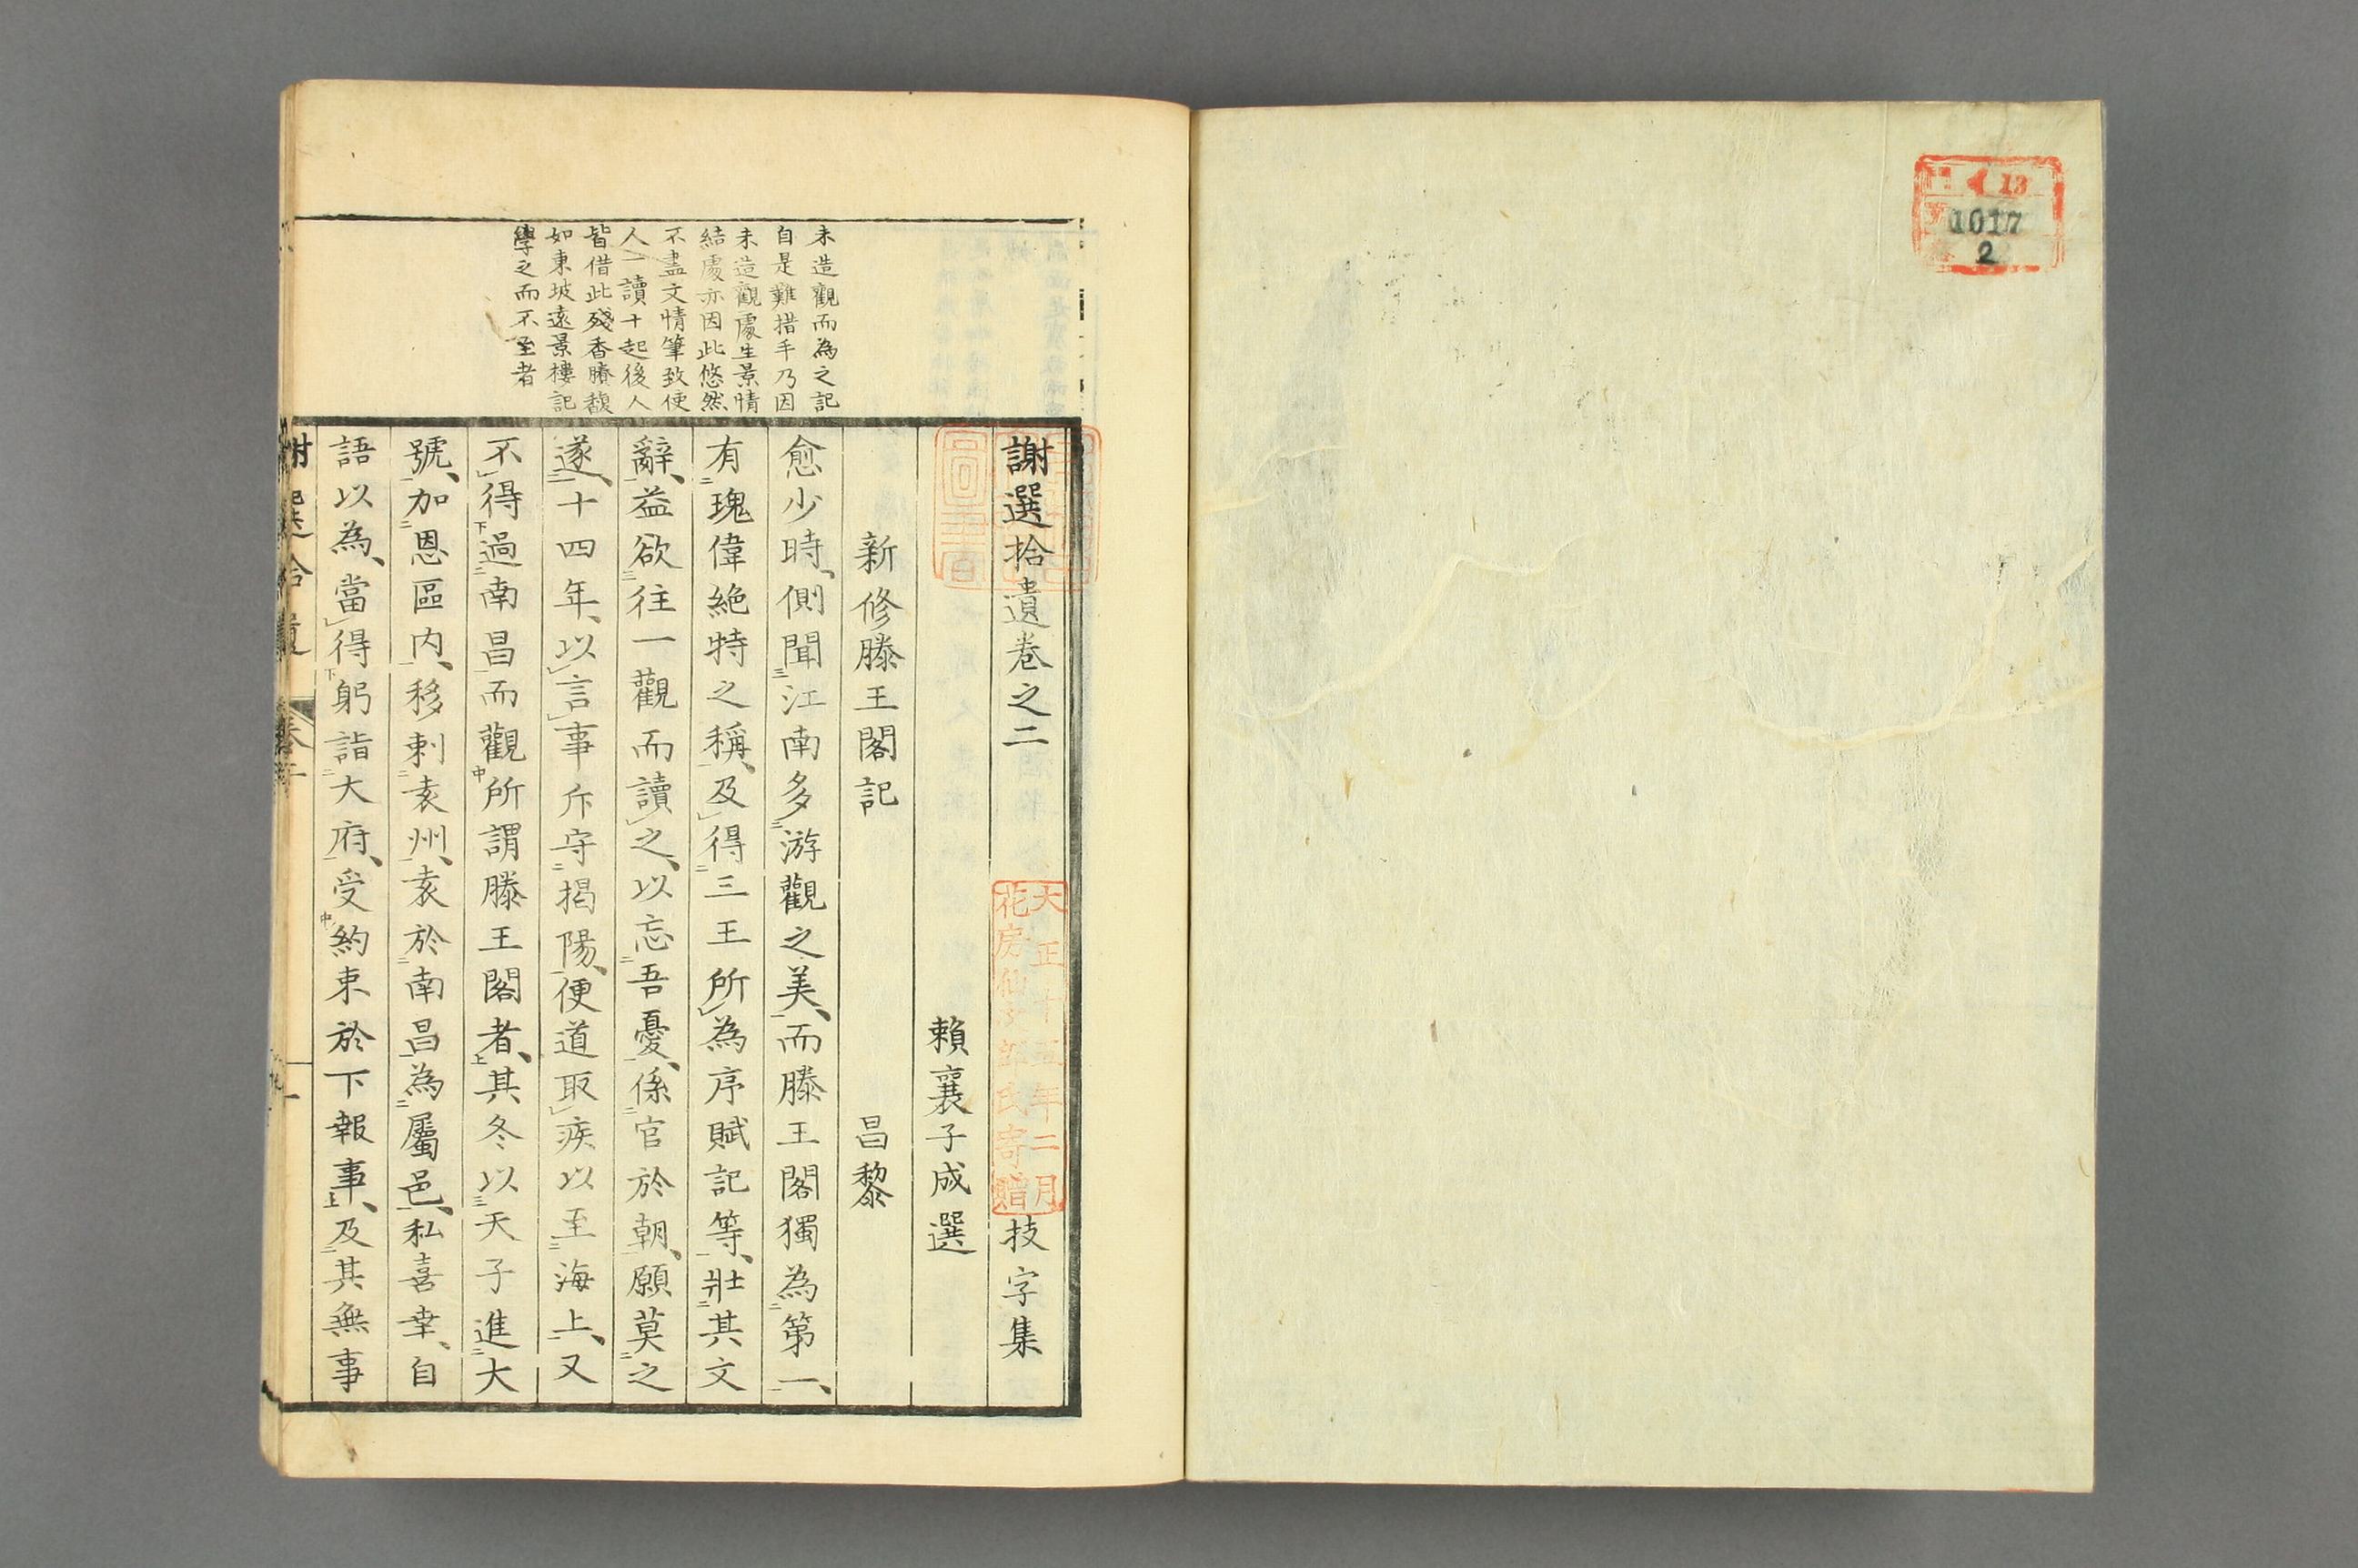 13
1017
2
謝選拾遺卷之二
技字集
大正十五年二月
花房仙次郎氏寄贈
賴襄子成選
新修滕王閣記
昌黎
愈少時、側聞江南多游觀之美、而滕王閣獨為第一、
有瑰偉絶特之稱、及得三王所為序賦記等、壯其文
辭、益欲往一觀而讀之、以忘吾憂、係官於朝、願莫之
遂、十四年、以言事斥守揭陽、便道取疾以至海上、又
不得過南昌而觀所謂滕王閣者、其冬以天子進大
號、加恩區内、移刺袁州、袁於南昌為屬邑、私喜幸、自
語以為、當得躬詣大府、受約束於下報事、及其無事
未造觀而為之記
自是難措手乃因
未造觀處生景情
結處亦因此悠然
不盡文情筆致使
人一讀十起後人
皆借此殘香賸馥
如東坡遠景樓記
學之而不至者
謝選拾遺
卷二
一